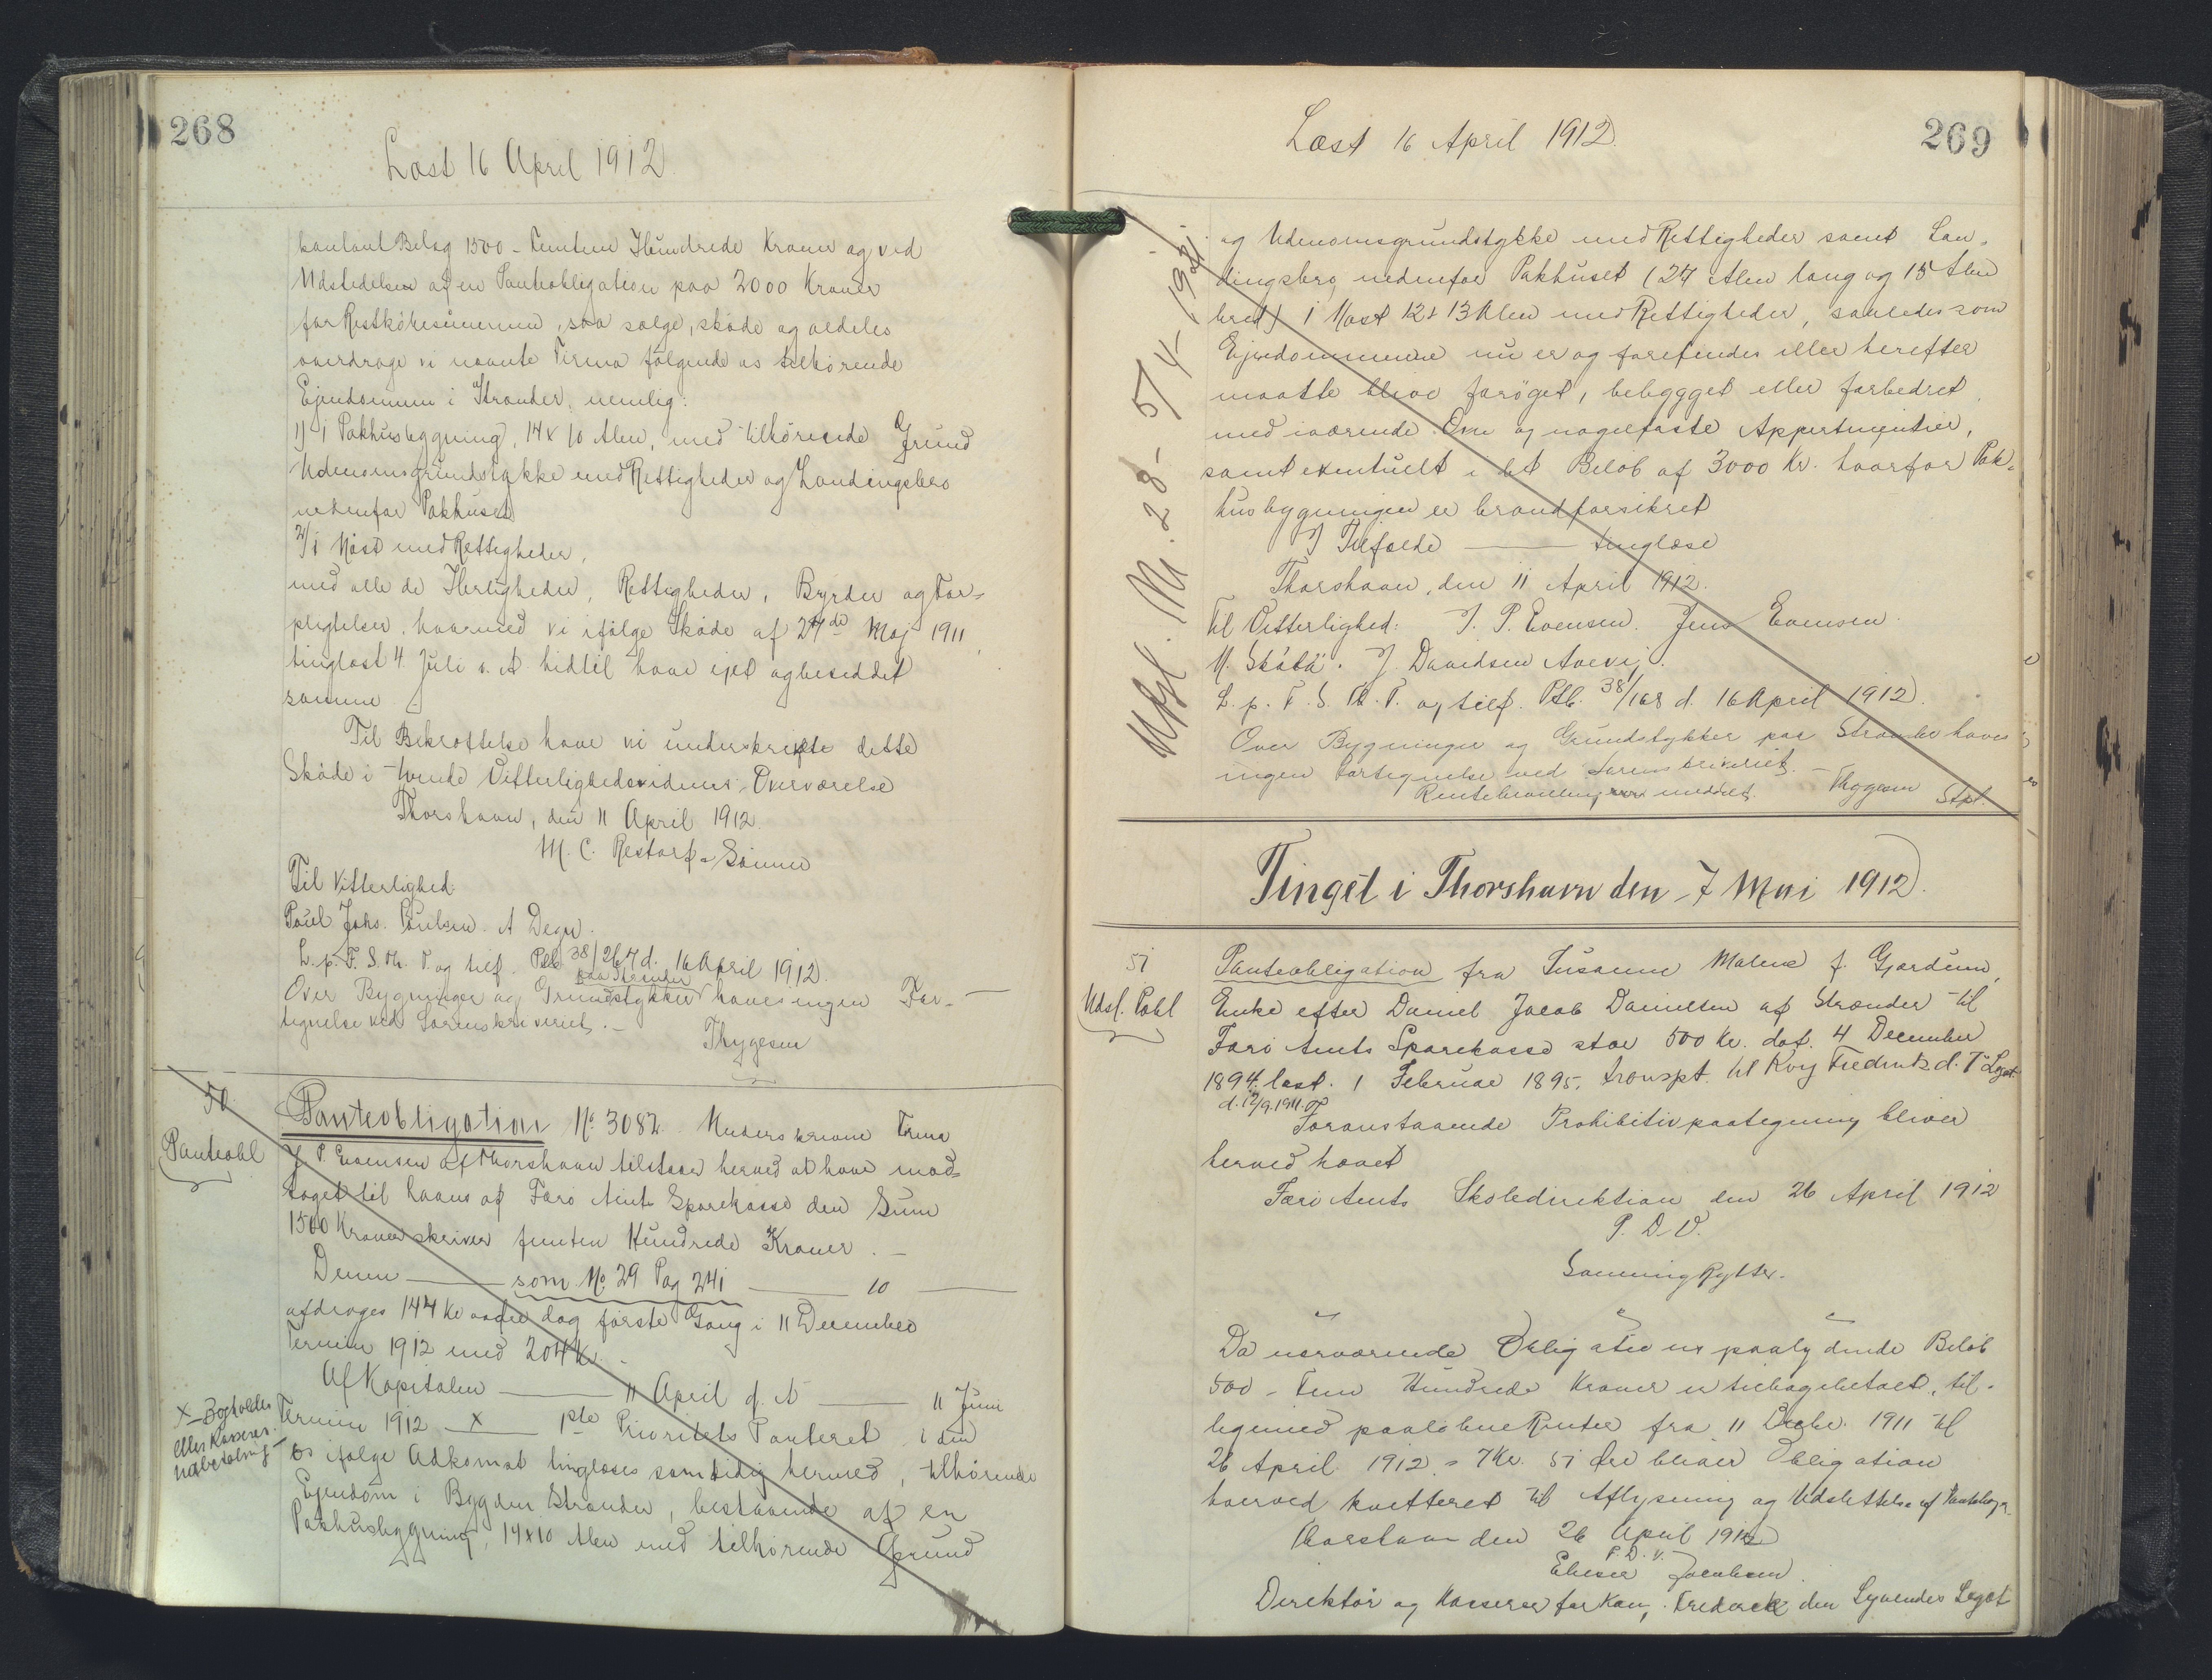 268
Læst 16 April 1912.
kontant Beløg 1500 - Femten Hundrede Kroner og ved
Udstedelsen af en Panteobligation paa 2000 Kroner
for Restkøbesummen, saa sælge, skøde og aldeles
overdrage vi nævnte Firma følgende os tilhørende
Ejendomme i Strander, nemlig:
1) 1 Pakhusbygning, 14 x 10 Alen, med tilhørende Grund
Udenomsgrundstykke med Rettigheder og Landingsbro
nedenfor Pakhuset
2/ 1 Nøst med Rettigheder,
med alle de Herligheder, Rettigheder, Byrder og For-
pligtelser, hvormed vi ifølge Skøde af 27de Maj 1911,
tinglæst 4 Juli s. A. hidtil have ejet og besiddet
samme.
Til Bekræftelse have vi underskrevet dette
Skøde i tvende Vitterlighedsvidners Overværelse
Thorshavn, den 11 April 1912.
M. C. Restorff & Sønner
Til Vitterlighed:
Poul Johs. Poulsen. A Degn.
L. p. F. S. Th. T. og tilf. Ptb 38/267 d. 16 April 1912.
paa Strander
Over Bygninger og Grundstykker haves ingen For-
tegnelse ved Sorenskriveriet. -
Thygesen
50
Panteobl
Panteobligation No. 3082. Underskrevne Firma
J. P. Evensen af Thorshavn tilstaar herved at have mod-
taget til Laans af Færø Amts Sparekasse den Sum
1500 Kroner skriver femten Hundrede Kroner. -
Denne ——— som No. 29 Pag 241 ——— 10 ———
afdrages 144 Kr første Gang i 11 December
Termin 1912 med 204 Kr. -
Af Kapitalen ——— 11 April d. A ——— 11 Juni
Termin 1912 x 1ste Prioritets Panteret i den
x Bogholder
eller Kasserer.
Udbetaling
os ifølge Adkomst tinglæses samtidig hermed, tilhørende
Ejendom i Bygden Strander, bestaaende af en
Pakhusbygning, 14x10 Alen med tilhørende Grund
269
Læst 16 April 1912.
Udsl. Nr. 28 - 5/4 - 1921.
og Udenomsgrundstykke med Rettigheder samt Lan-
dingsbro nedenfor Pakhuset (27 Alen lang og 15 Alen
bred) 1 Nøst 12 x 13 Alen med Rettigheder, saaledes som
Ejendommene nu er og forefindes eller herefter
maatte blive forøget, bebygget eller forbedret,
med iværende Ovne og nagelfaste Appertinentier,
samt eventuelt i det Beløb af 3000 Kr. hvorfor Pak-
husbygningen er brandforsikret
I Tilfælde ——— tinglæse
Thorshavn, den 11 April 1912.
Til Vitterlighed: J. P. Evensen. Jens Evensen.
M. Skålå. J. Davidsen Avevej.
L. p. F. S. Th. T. og tilf. Ptb. 38/268 d. 16 April 1912.
Over Bygninger og Grundstykker paa Strander haves
ingen Fortegnelse ved Sorenskriveriet. -
Rentebevilling meddelt. Thygesen Stpl.
Tinget i Thorshavn den 7 Mai 1912.
51
Udsl. Pobl
Panteobligation fra Susanne Malene f. Gjerdum,
Enke efter Daniel Jacob Danielsen af Strænder til
Færø Amts Sparekasse stor 500 Kr. dat. 4 December
1894. læst. 1 Februar 1895, transpt. til Kong Frederik d. 7s Legat
d. 12/9.1911.
Foranstaaende Prohibitivpaategning bliver
herved hævet
Færø Amts Skoledirektion den 26 April 1912
P. D. V.
Samming Rytter.
Da nærværende Obligations paalydende Beløb
500 - Fem Hundrede Kroner er tilbagebetalt, til-
ligemed paaløbne Renter fra 11 Decbr. 1911 til
26 April 1912 = 7 Kr. 51 Øre bliver Obligation
herved kvitteret til Aflysning og Udslettelse af Pantebogn.
Thorshavn den 26 April 1912
P. D. V.
Elieser Jacobsen.
Direktør og Kasserer for Kong Frederik den Syvendes Legat